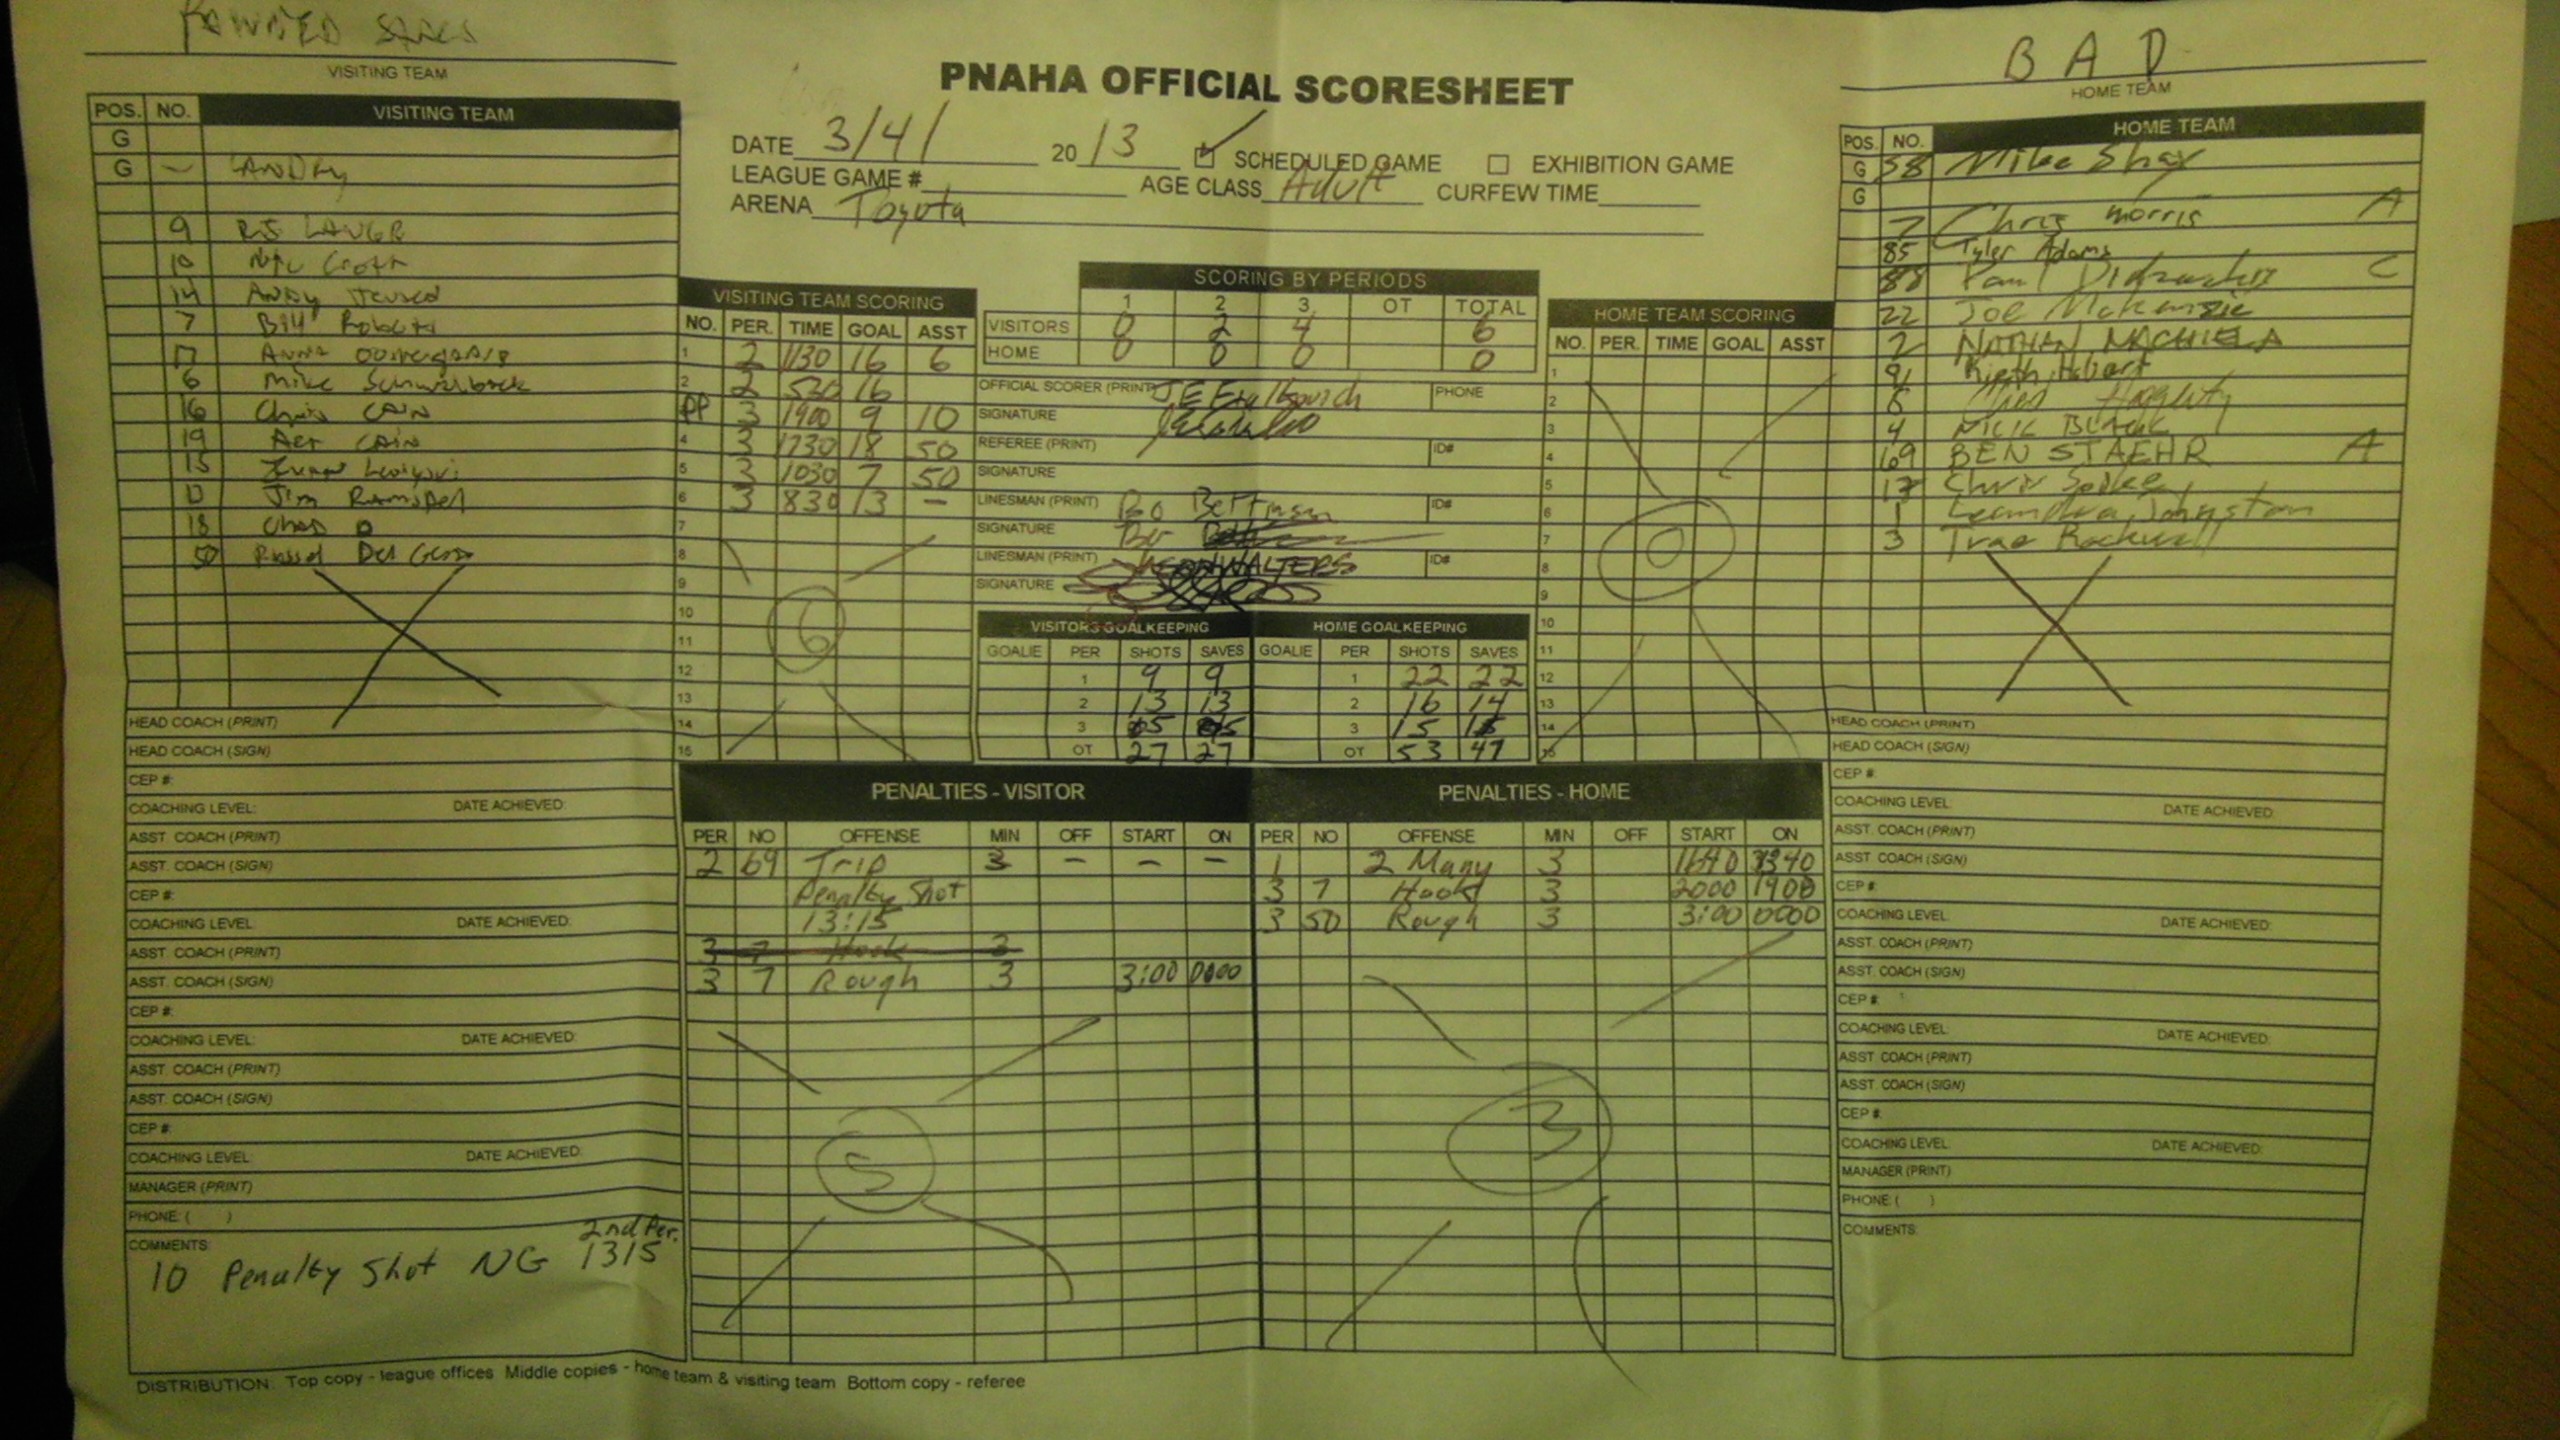 BAD
VISITING TEAM
HOME TEAM
PNAHA OFFICIAL SCORESHEET
DATE 3/4/ 2013 SCHEDULED GAME EXHIBITION GAME
LEAGUE GAME # AGE CLASS Adult CURFEW TIME
ARENA Toyota
POS. NO. VISITING TEAM
G
G - LANDRY
9 RJ LANGER
10
14 ANDY
7 Bill Roberts
17 ANNA
6 Mike Schwalbach
16 Chris CAIN
19 CAIN
15
13 Jim Ramsdell
18 Chad D
50 Russel Del Gesso
HEAD COACH (PRINT)
HEAD COACH (SIGN)
CEP #:
COACHING LEVEL: DATE ACHIEVED:
ASST. COACH (PRINT)
ASST. COACH (SIGN)
CEP #:
COACHING LEVEL: DATE ACHIEVED:
ASST. COACH (PRINT)
ASST. COACH (SIGN)
CEP #:
COACHING LEVEL: DATE ACHIEVED:
ASST. COACH (PRINT)
ASST. COACH (SIGN)
CEP #:
COACHING LEVEL: DATE ACHIEVED:
MANAGER (PRINT)
PHONE: ( )
COMMENTS:
10 Penalty Shot NG 2nd Per. 1315
VISITING TEAM SCORING
NO. PER. TIME GOAL ASST
1 2 1130 16 6
2 2 530 16
PP 3 1900 9 10
4 3 1730 18 50
5 3 1030 7 50
6 3 830 13 -
7
8
9
10
11
12
13
14
15
6
SCORING BY PERIODS
1 2 3 OT TOTAL
VISITORS 0 2 4 6
HOME 0 0 0 0
OFFICIAL SCORER (PRINT) PHONE
SIGNATURE
REFEREE (PRINT) ID#
SIGNATURE
LINESMAN (PRINT) Bo ID#
SIGNATURE Bo
LINESMAN (PRINT) WALTERS ID#
SIGNATURE
VISITORS GOALKEEPING
GOALIE PER SHOTS SAVES
1 9 9
2 13 13
3 05 05
OT 27 27
HOME GOALKEEPING
GOALIE PER SHOTS SAVES
1 22 22
2 16 14
3 15
OT 53 47
HOME TEAM SCORING
NO. PER. TIME GOAL ASST
1
2
3
4
5
6
7
8
9
10
11
12
13
14
15
0
PENALTIES - VISITOR
PER NO OFFENSE MIN OFF START ON
2 69 Trip 3 - - -
Penalty Shot
13:15
3 7 Hook 3
3 7 Rough 3 3:00 0000
5
PENALTIES - HOME
PER NO OFFENSE MIN OFF START ON
1 2 Many 3 1640 1340
3 7 Hook 3 2000 1900
3 50 Rough 3 3:00 0000
3
POS. NO. HOME TEAM
G 38 Mike Shay
G
7 Chris Morris A
85 Tyler Adams
88 Paul C
22 Joe McKenzie
2 NATHAN MACHIELA
91 Kieth Hobart
8 Haggerty
4 NICK BLACK
69 BEN STAEHR A
17 Chris Spike
1 Leandra Johnston
3 Trae Rockwell
HEAD COACH (PRINT)
HEAD COACH (SIGN)
CEP #:
COACHING LEVEL: DATE ACHIEVED:
ASST. COACH (PRINT)
ASST. COACH (SIGN)
CEP #:
COACHING LEVEL: DATE ACHIEVED:
ASST. COACH (PRINT)
ASST. COACH (SIGN)
CEP #:
COACHING LEVEL: DATE ACHIEVED:
ASST. COACH (PRINT)
ASST. COACH (SIGN)
CEP #:
COACHING LEVEL: DATE ACHIEVED:
MANAGER (PRINT)
PHONE: ( )
COMMENTS:
DISTRIBUTION: Top copy - league offices Middle copies - home team & visiting team Bottom copy - referee